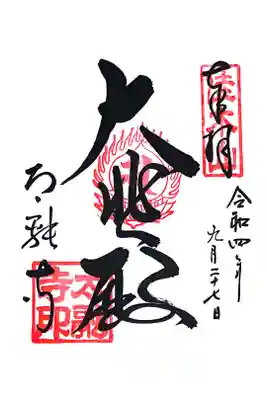 奉拝
令和四年
九月二十七日
大悲殿
太融寺
太融
寺印